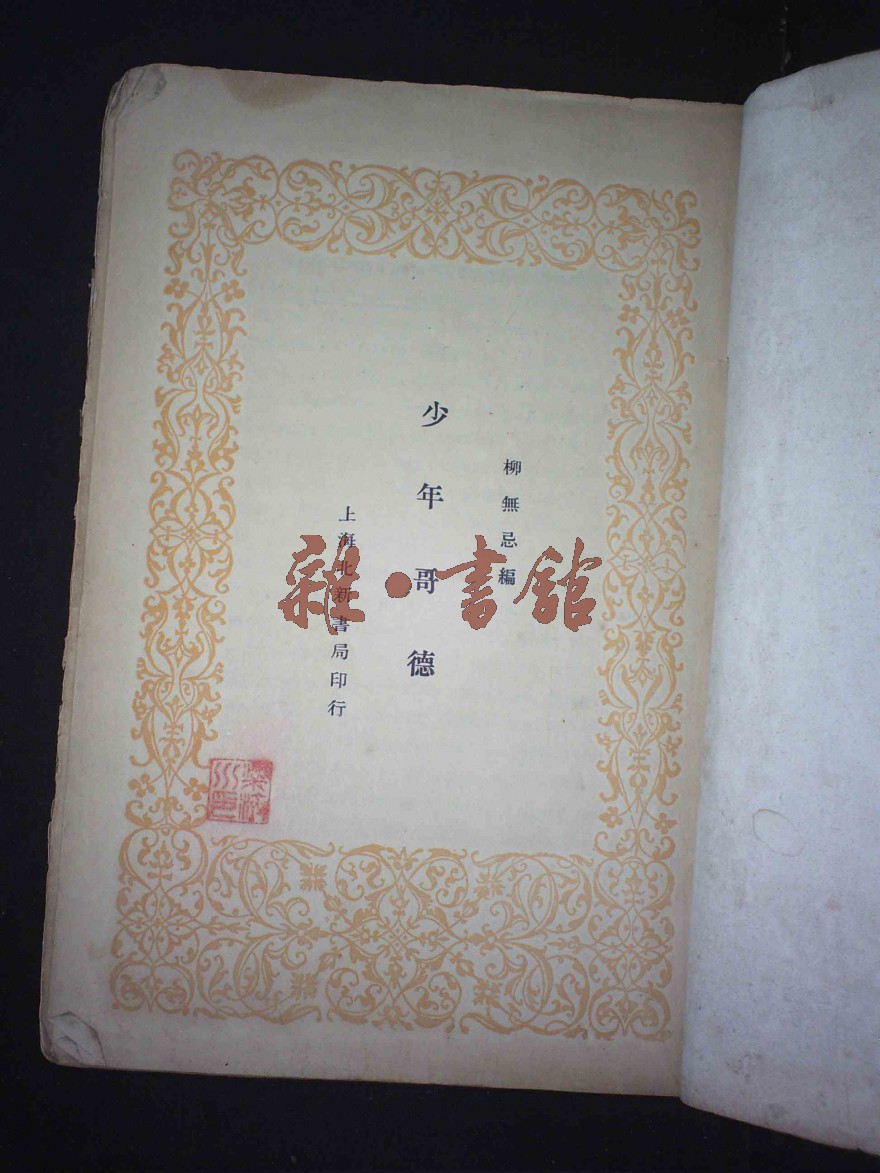 柳無忌編
少年哥德
上海北新書局印行
雜·書館